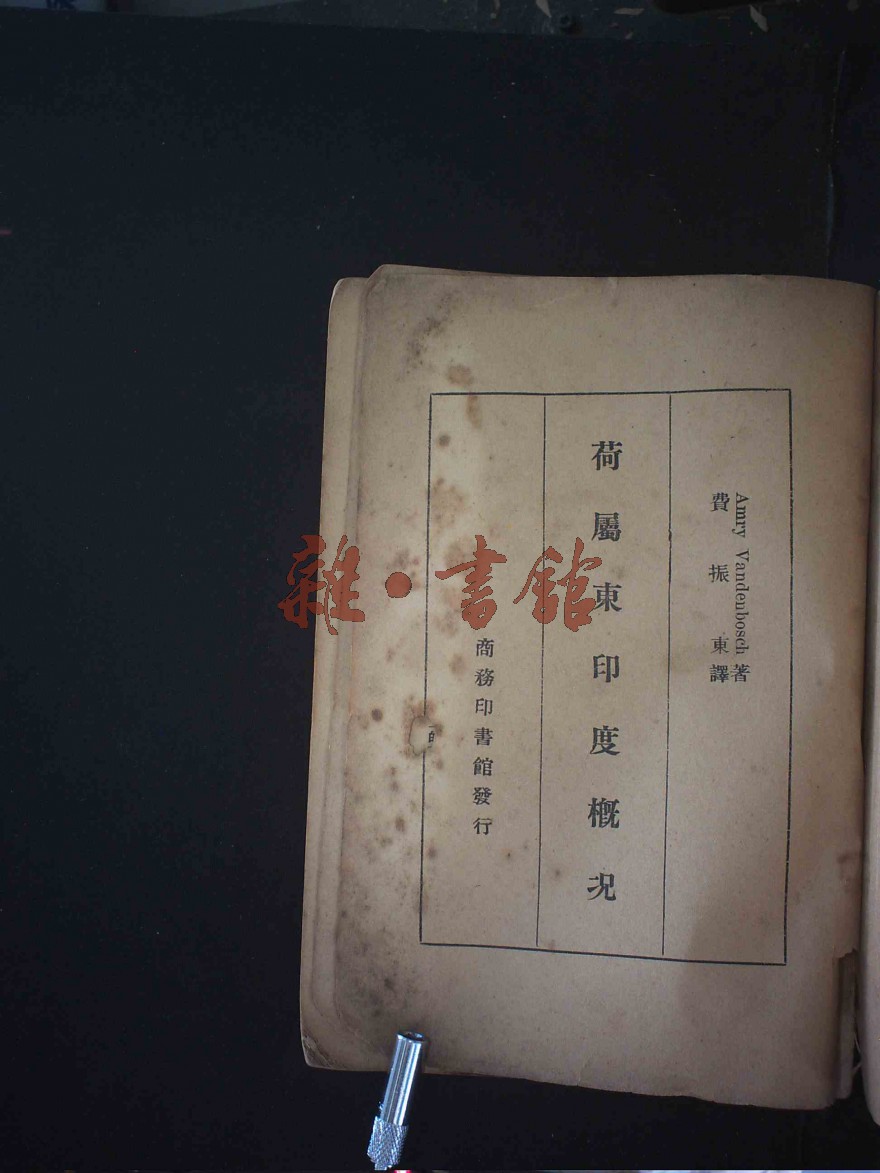 Amry Vandenbosch 著
費振東譯
荷屬東印度概況
商務印書館發行
雜·書館